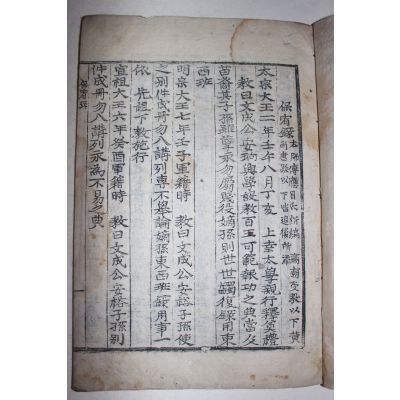 保宥錄
太宗大王二年壬午八月丁亥 上幸太學親行釋奠禮
敎曰文成公安裕興學設敎百王可範報功之典當及
苗裔其子孫雖孽永勿屬賤役嫡孫則世世錄復錄用東
西班
明宗大王七年壬子軍籍時 敎曰文成公安裕子孫使
之別件成冊勿入講列專不學論嫡孫東西班錄用事一
依 先祖下敎施行
宣祖大王六年癸酉軍籍時 敎曰文成公安裕子孫別
件成冊勿入講列永爲不易之典